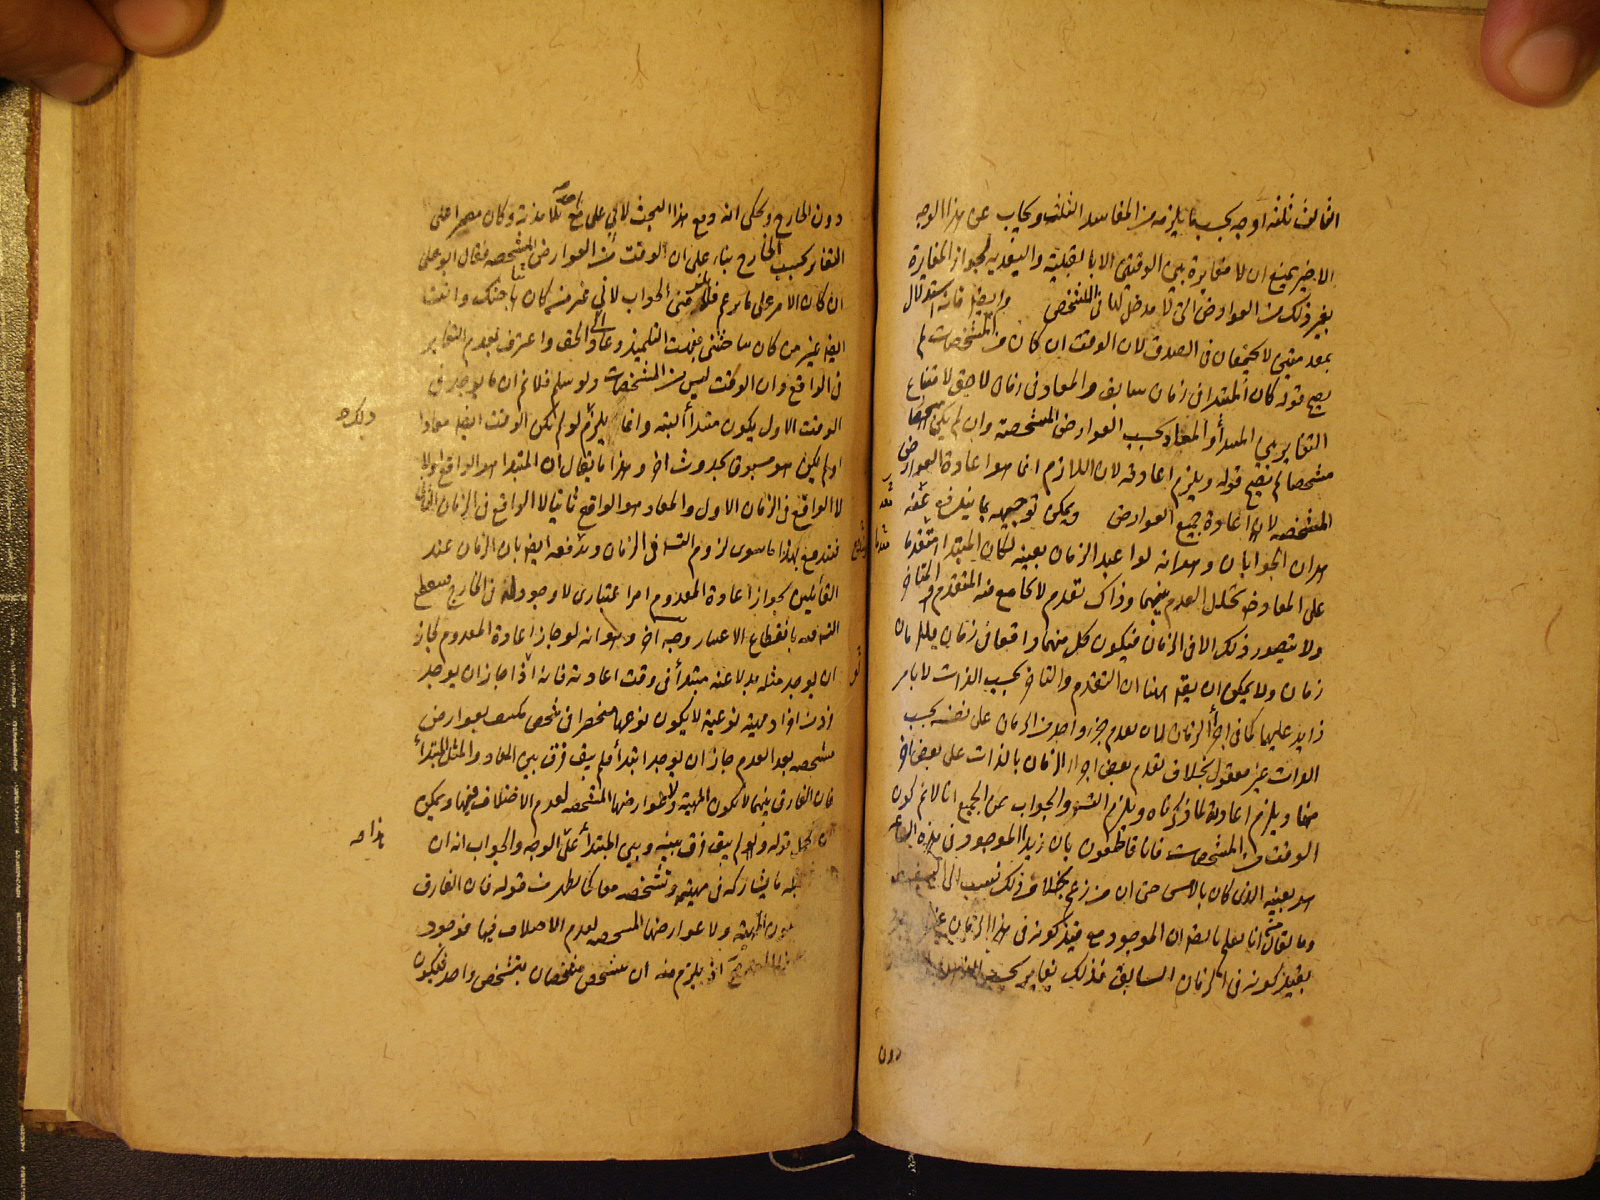 الثالث ثلثة اوجه بحسب ما يلزمه من المفاسد الثلث ويجاب عن هذا الوجه
الاخير بمنع ان لا مغايرة بين الوقتين الا بالقبلية والبعدية لجواز المغايرة
بغير ذلك من العوارض التى لا مدخل لها فى التشخص وايضا فانه استدلال
بمعد متين لا يجتمعان فى الصدق لان الوقت ان كان من المشخصات لم
يصح قوله كان المبتدا فى زمان سابق والمعاد فى زمان لاحق لامتناع
التغاير بين المبتدأ والمعاد بحسب العوارض المشخصة وان لم يكن
مشخصا لم يصح قوله ويلزم اعادته لان اللازم انما هو اعادة العوارض
المشخصه لا اعادة جميع العوارض ويمكن توجيهه بما يندفع عنه
هذان الجوابان وهو انه لو اعيد الزمان بعينه لكان المبتدا متقدما
على المعاد ضرورة تخلل العدم بينهما وذاك تقدم لا يجامع فيه المتقدم المتاخر
ولا يتصور ذلك الا فى الزمان فيكون كل منهما واقعا فى زمان فللزمان
زمان ولا يمكن ان يقال ههنا ان التقدم والتاخر بحسب الذات لا بامر
زايد عليهما كما فى اجزأ الزمان لان تقدم جزء واحد من الزمان على نفسه بحسب
الذات غير معقول بخلاف تقدم بعض اجزاء الزمان بالذات على بعض اخر
منها ويلزم اعادته لما ذكرناه ويلزم التس والجواب عن الجميع انا لا نم كون
الوقت من المشخصات فانا قاطعون بان زيدا الموجود فى هذه الساعة
هو بعينه الذى كان بالامس حتى ان من زعم بخلاف ذلك نسب الى السفسطة
وما يقال انا نعلم بالضرورة ان الموجود مع قيد كونه فى هذا الزمان غير
بقيد كونه فى الزمان السابق فذلك تغاير بحسب
دون
دون الخارج وحكى انه وقع هذا البحث لابي على مع احد تلامذته وكان مصرا على
التغاير بحسب الخارج بناء على ان الوقت من العوارض المشخصه فقال ابو على
ان كان الامر على ما تزعم فلا يلزمنى الجواب لانى غير من كان يباحثك وانت
ايضا غير من كان يباحثنى فبهت التلميذ وعاد الى الحق واعترف بعدم التغاير
فى الواقع وان الوقت ليس من المشخصات ولو سلم فلا نم ان ما يوجد فى
الوقت الاول يكون مبتدأ البته وانما يلزم لو لم يكن الوقت ايضا معادا
او لم يكن هو مسبوقا بحدوث اخر وهذا ما يقال ان المبتدا هو الواقع اولا
لا الواقع فى الزمان الاول والمعاد هو الواقع ثانيا لا الواقع فى الزمان الثانى
فيندفع بهذا ما سوى لزوم التس فى الزمان وندفعه ايضا بان الزمان عند
القائلين بجواز اعادة المعدوم امر اعتبارى لا وجود له فى الخارج فينقطع
التس فيه بانقطاع الاعتبار وجه اخر وهو انه لو جاز اعادة المعدوم لجاز
ان يوجد مثله بدلا عنه مبتدأ فى وقت اعادته فانه اذا جاز ان يوجد
فرد من افراد مهية نوعية لا يكون نوعها منحصرا فى شخص مكتنف بعوارض
مشخصه بعد العدم جاز ان يوجد ابتدأ فلم يبق فرق بين المعاد والمثل المبتدأ
فان الفارق بينهما لا يكون المهية ولا عوارضها المشخصه لعدم الاختلاف فيها ويمكن
ان يحمل قوله ولم يبق فرق بينه وبين المبتدأ على الوجه والجواب انه ان
مثله ما يشاركه فى مهيته وتشخصه معا كما يظهر من قوله فان الفارق
يكون المهية ولا عوارضها المشخصه لعدم الاختلاف فيها فوجود
اذ يلزم منه ان يتشخص شخصان بتشخص واحد فيكون